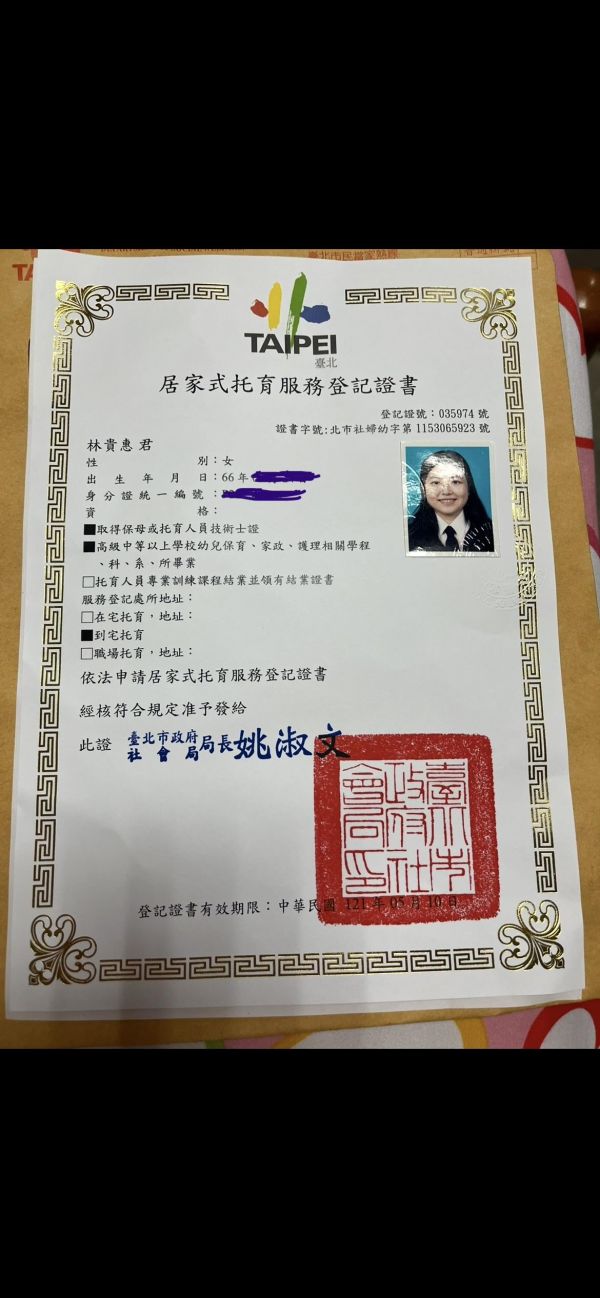 臺北市民當家熱線
TAIPEI
臺北
居家式托育服務登記證書
登記證號：035974 號
證書字號:北市社婦幼字第 1153065923 號
林貴惠 君
性別：女
出生年月日：66年
身分證統一編號：
資格：
■取得保母或托育人員技術士證
■高級中等以上學校幼兒保育、家政、護理相關學程
、科、系、所畢業
□托育人員專業訓練課程結業並領有結業證書
服務登記處所地址：
□在宅托育，地址：
■到宅托育
□職場托育，地址：
依法申請居家式托育服務登記證書
經核符合規定准予發給
此證 臺北市政府社會局局長姚淑文
臺北市政府社會局印
登記證書有效期限：中華民國 121 年 05 月 10 日